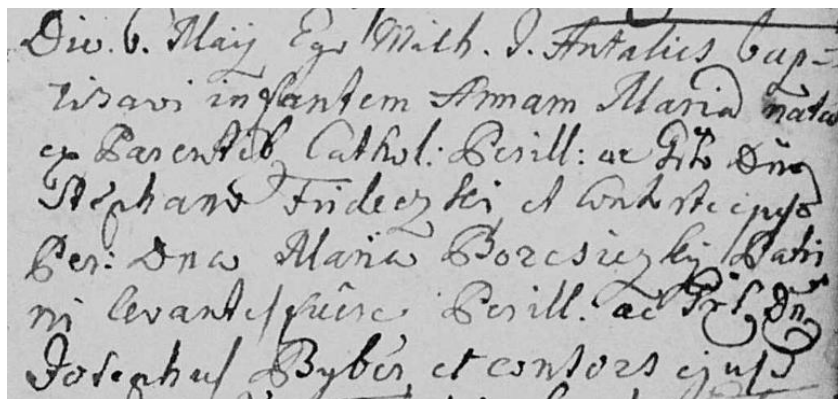 Die 6. Maij Ego Math. J. Antalics bap=
tisavi infantem Annam Maria nata
ex Parentib Catholi: Perill: ac Gño Dño
Stephano Frideczki et Consorte ejuso
Per: Dna Maria Borcsiczkij Patri
ni levantes fuêre Perill. ac Grs Dn
Josephus Bybér et consors ejusd